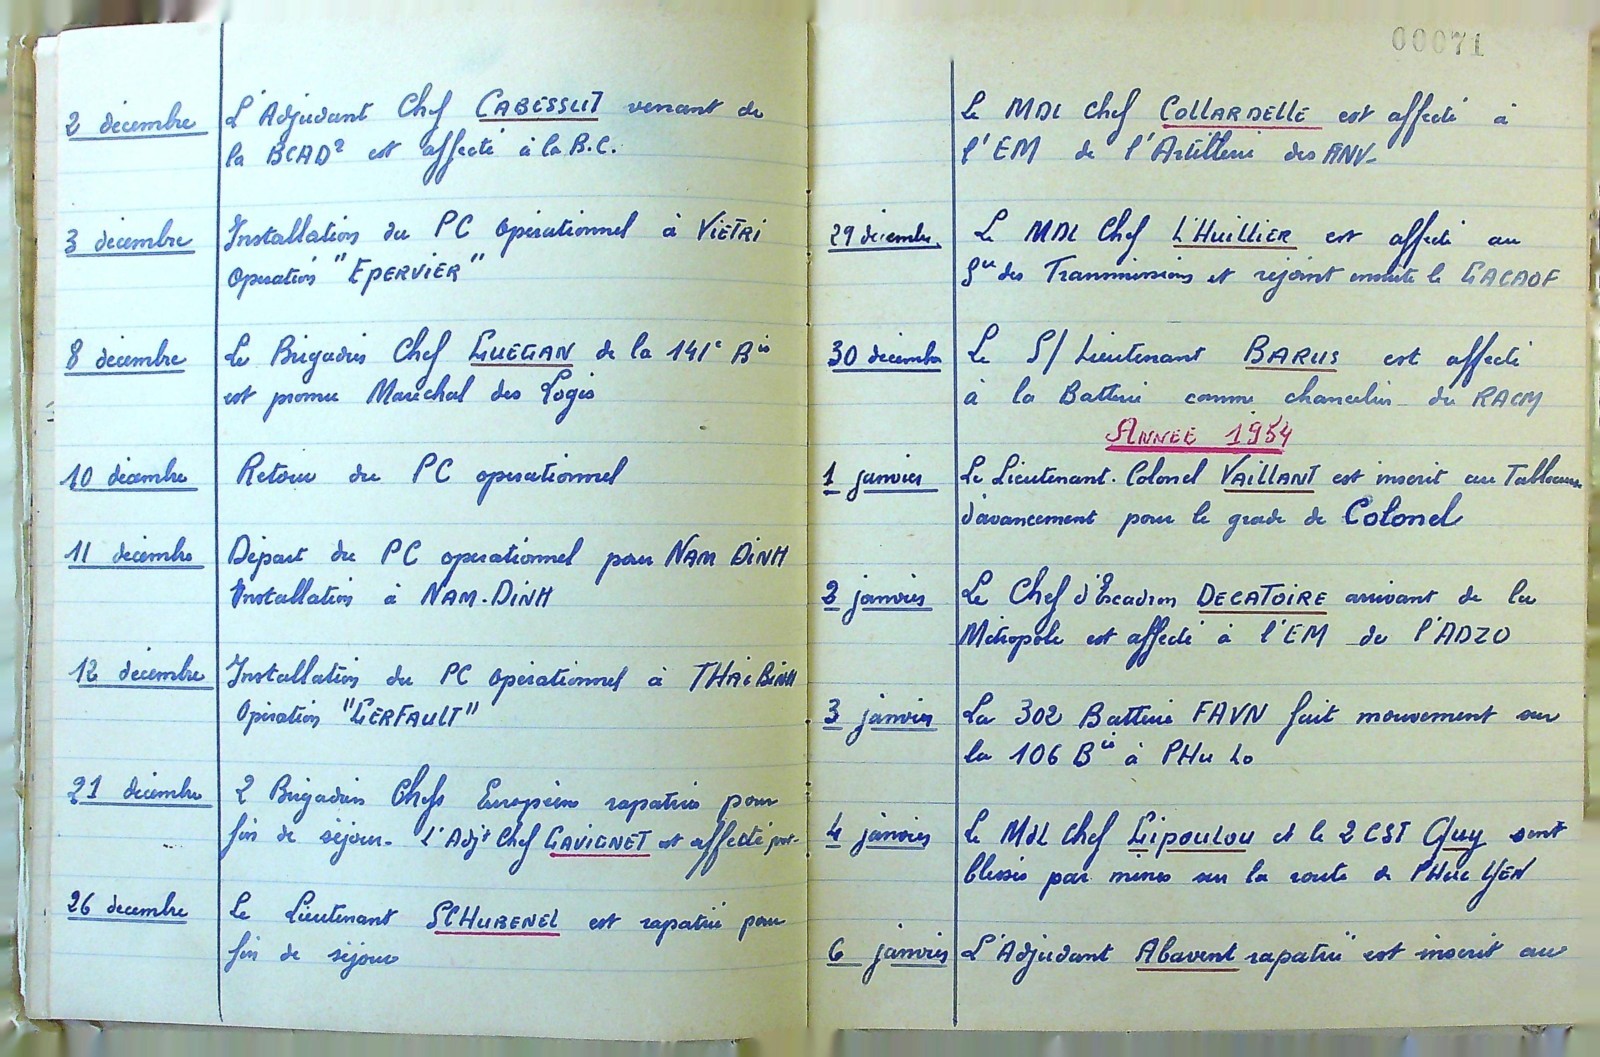 2 décembre L'Adjudant Chef CABESSUT venant de
la BCAD² est affecté à la B.C.
3 décembre Installation du PC Opérationnel à VIETRI
Opération "EPERVIER"
8 décembre Le Brigadier Chef GUEGAN de la 141e Bie
est promu Maréchal des Logis
10 décembre Retour du PC opérationnel
11 décembre Départ du PC opérationnel pour NAM DINH
Installation à NAM-DINH
12 décembre Installation du PC opérationnel à THAI BINH
Opération "GERFAULT"
21 décembre 2 Brigadiers Chefs Européens rapatriés pour
fin de séjour. L'Adjt Chef GAVIGNET est affecté
26 décembre Le Lieutenant SCHUBENEL est rapatrié pour
fin de séjour
00071
Le MDL Chef COLLARDELLE est affecté à
l'EM de l'Artillerie des FANV
29 décembre Le MDL Chef L'HUILLIER est affecté au
des Transmissions et rejoint ensuite le GACAOF
30 décembre Le S/Lieutenant BARUS est affecté
à la Batterie comme chancelier du RACM
ANNEE 1954
1 janvier Le Lieutenant-Colonel VAILLANT est inscrit au Tableau
d'avancement pour le grade de Colonel
2 janvier Le Chef d'Escadron DECATOIRE arrivant de la
Métropole est affecté à l'EM de l'ADZO
3 janvier La 302 Batterie FAVN fait mouvement sur
la 106 Bie à PHU LO
4 janvier Le Mdl Chef Lipoulou et le 2 CST Guy sont
blessés par mines sur la route de PHUC YEN
6 janvier L'Adjudant Abavent rapatrié est inscrit au